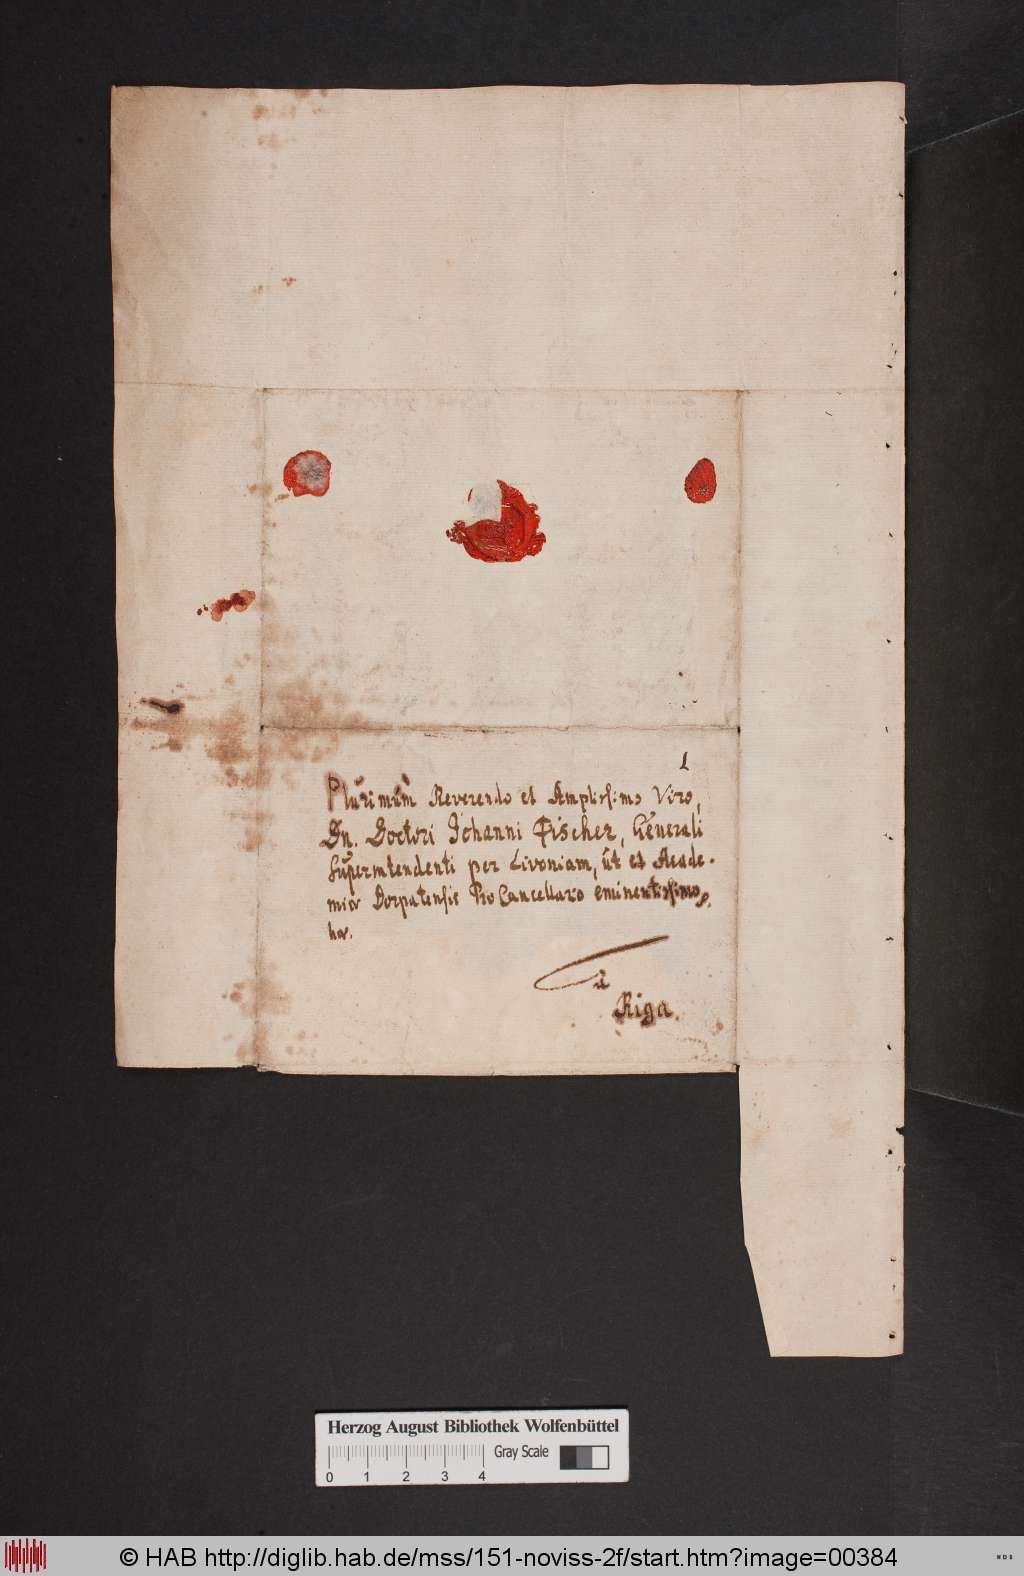 1
Plurimùm Reverendo et Amplissimo Viro,
Dn. Doctori Johanni Fischer, Generali
Superintendenti per Livoniam, ut et Acade-
miæ Dorpatensis ProCancellario eminentissimo
â
Riga.
Herzog August Bibliothek Wolfenbüttel
0 1 2 3 4
Gray Scale
© HAB http://diglib.hab.de/mss/151-noviss-2f/start.htm?image=00384